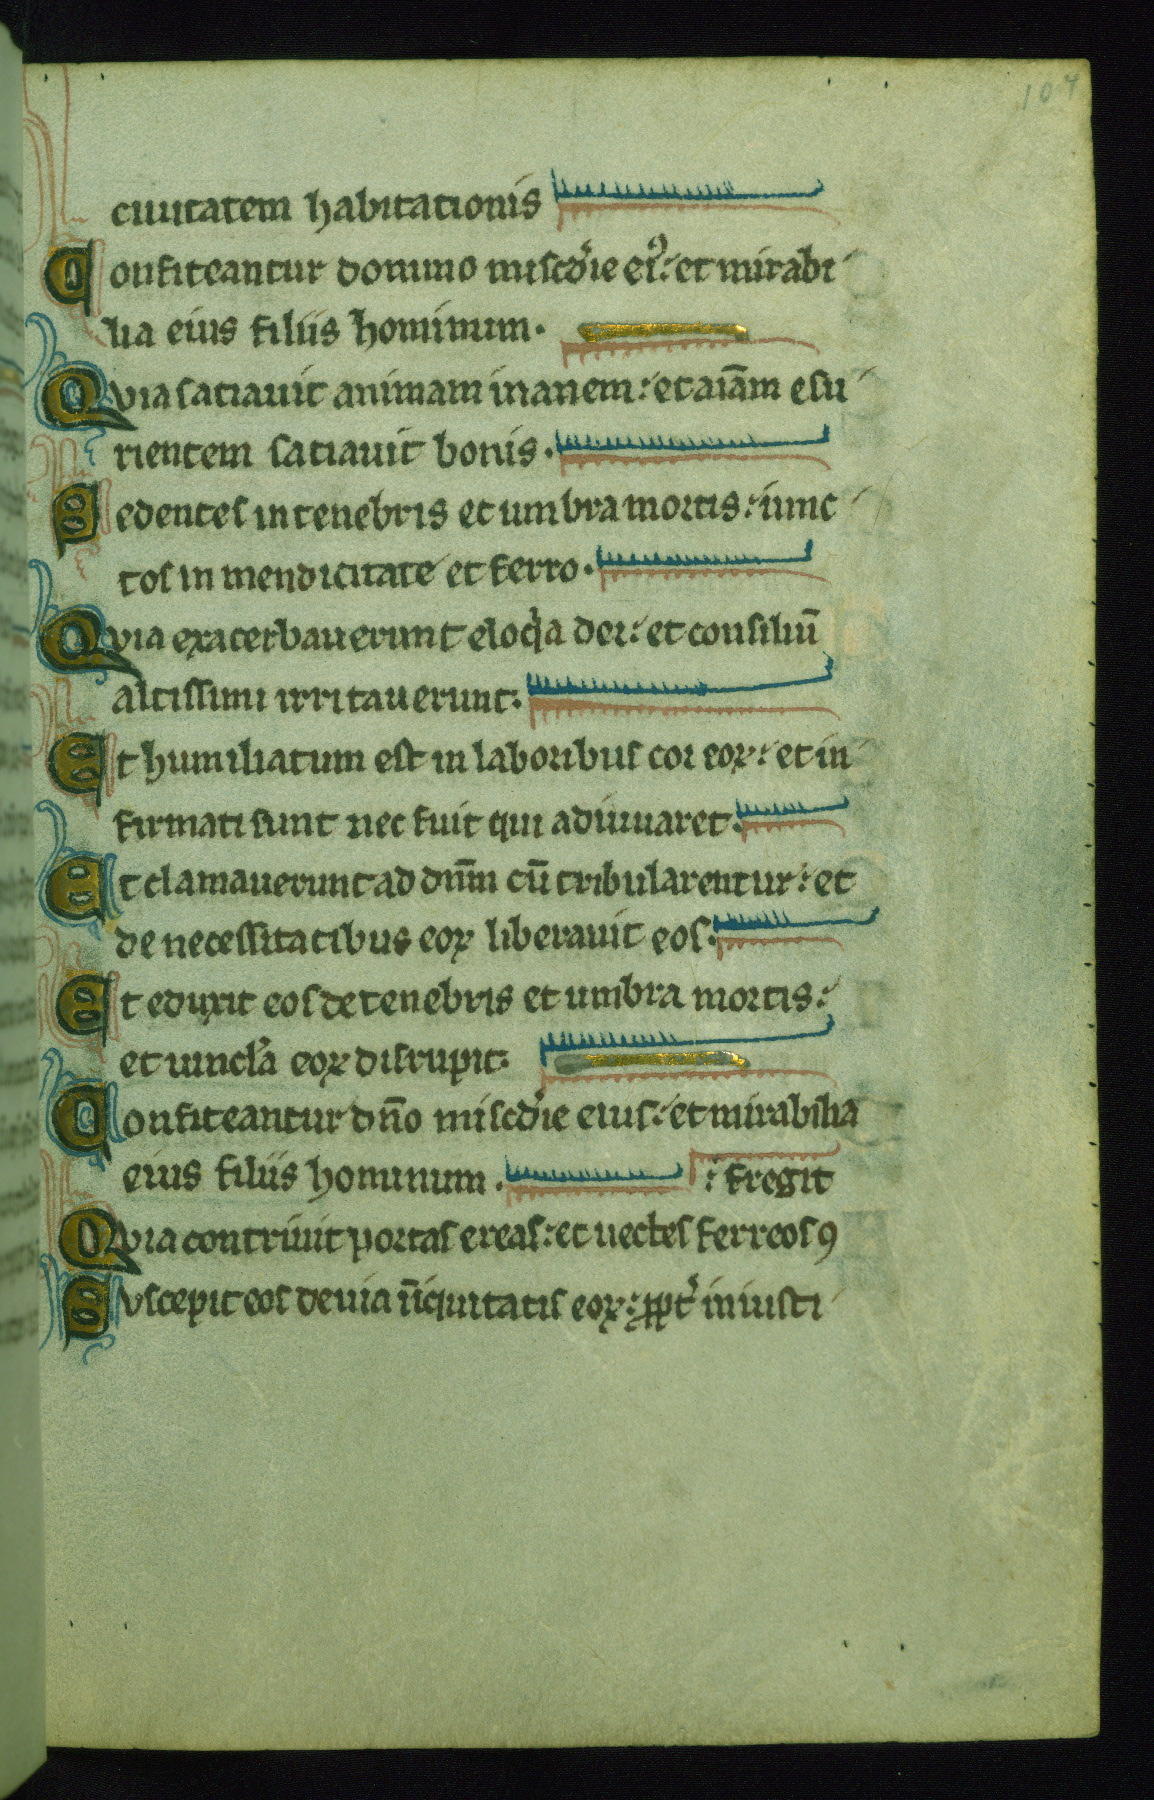 104
ciuitatem habitationis
Confiteantur domino miscd̕ie eiꝰ: et mirabi
lia eius filiis hominum.
Quia satiauit animam inanem: et aīam esu
rientem satiauit bonis.
Sedentes in tenebris et umbra mortis: iunc
tos in mendicitate et ferro.
Quia exacerbauerunt eloq̕a dei: et consiliū
altissimi irritauerunt.
Et humiliatum est in laboribus cor eoꝝ: et in
firmati sunt nec fuit qui adiuuaret.
Et clamauerunt ad dn̄m cū tribularentur: et
de necessitatibus eoꝝ liberauit eos.
Et eduxit eos de tenebris et umbra mortis:
et uincl̕a eoꝝ disrupit.
Confiteantur dn̄o miscd̕ie eius: et mirabilia
eius filiis hominum. : fregit
Quia contriuit portas ereas: et uectes ferreos ꝯ
Suscepit eos de uia iniquitatis eoꝝ: ꝓpt̕ iniusti